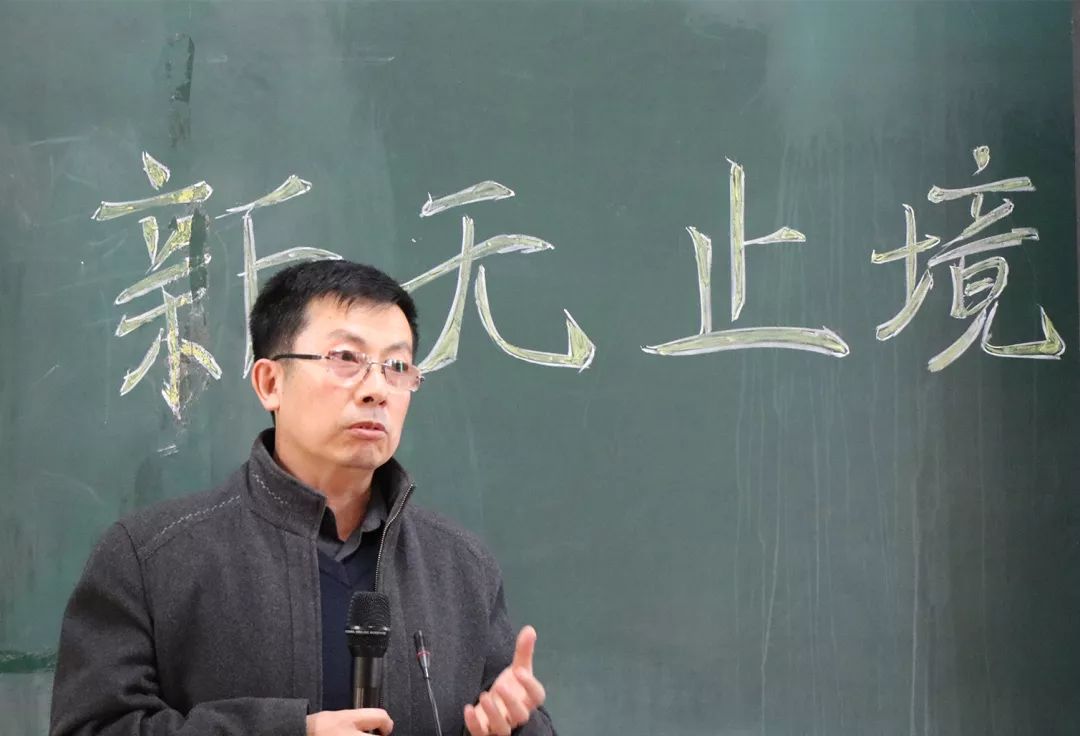 新无止境